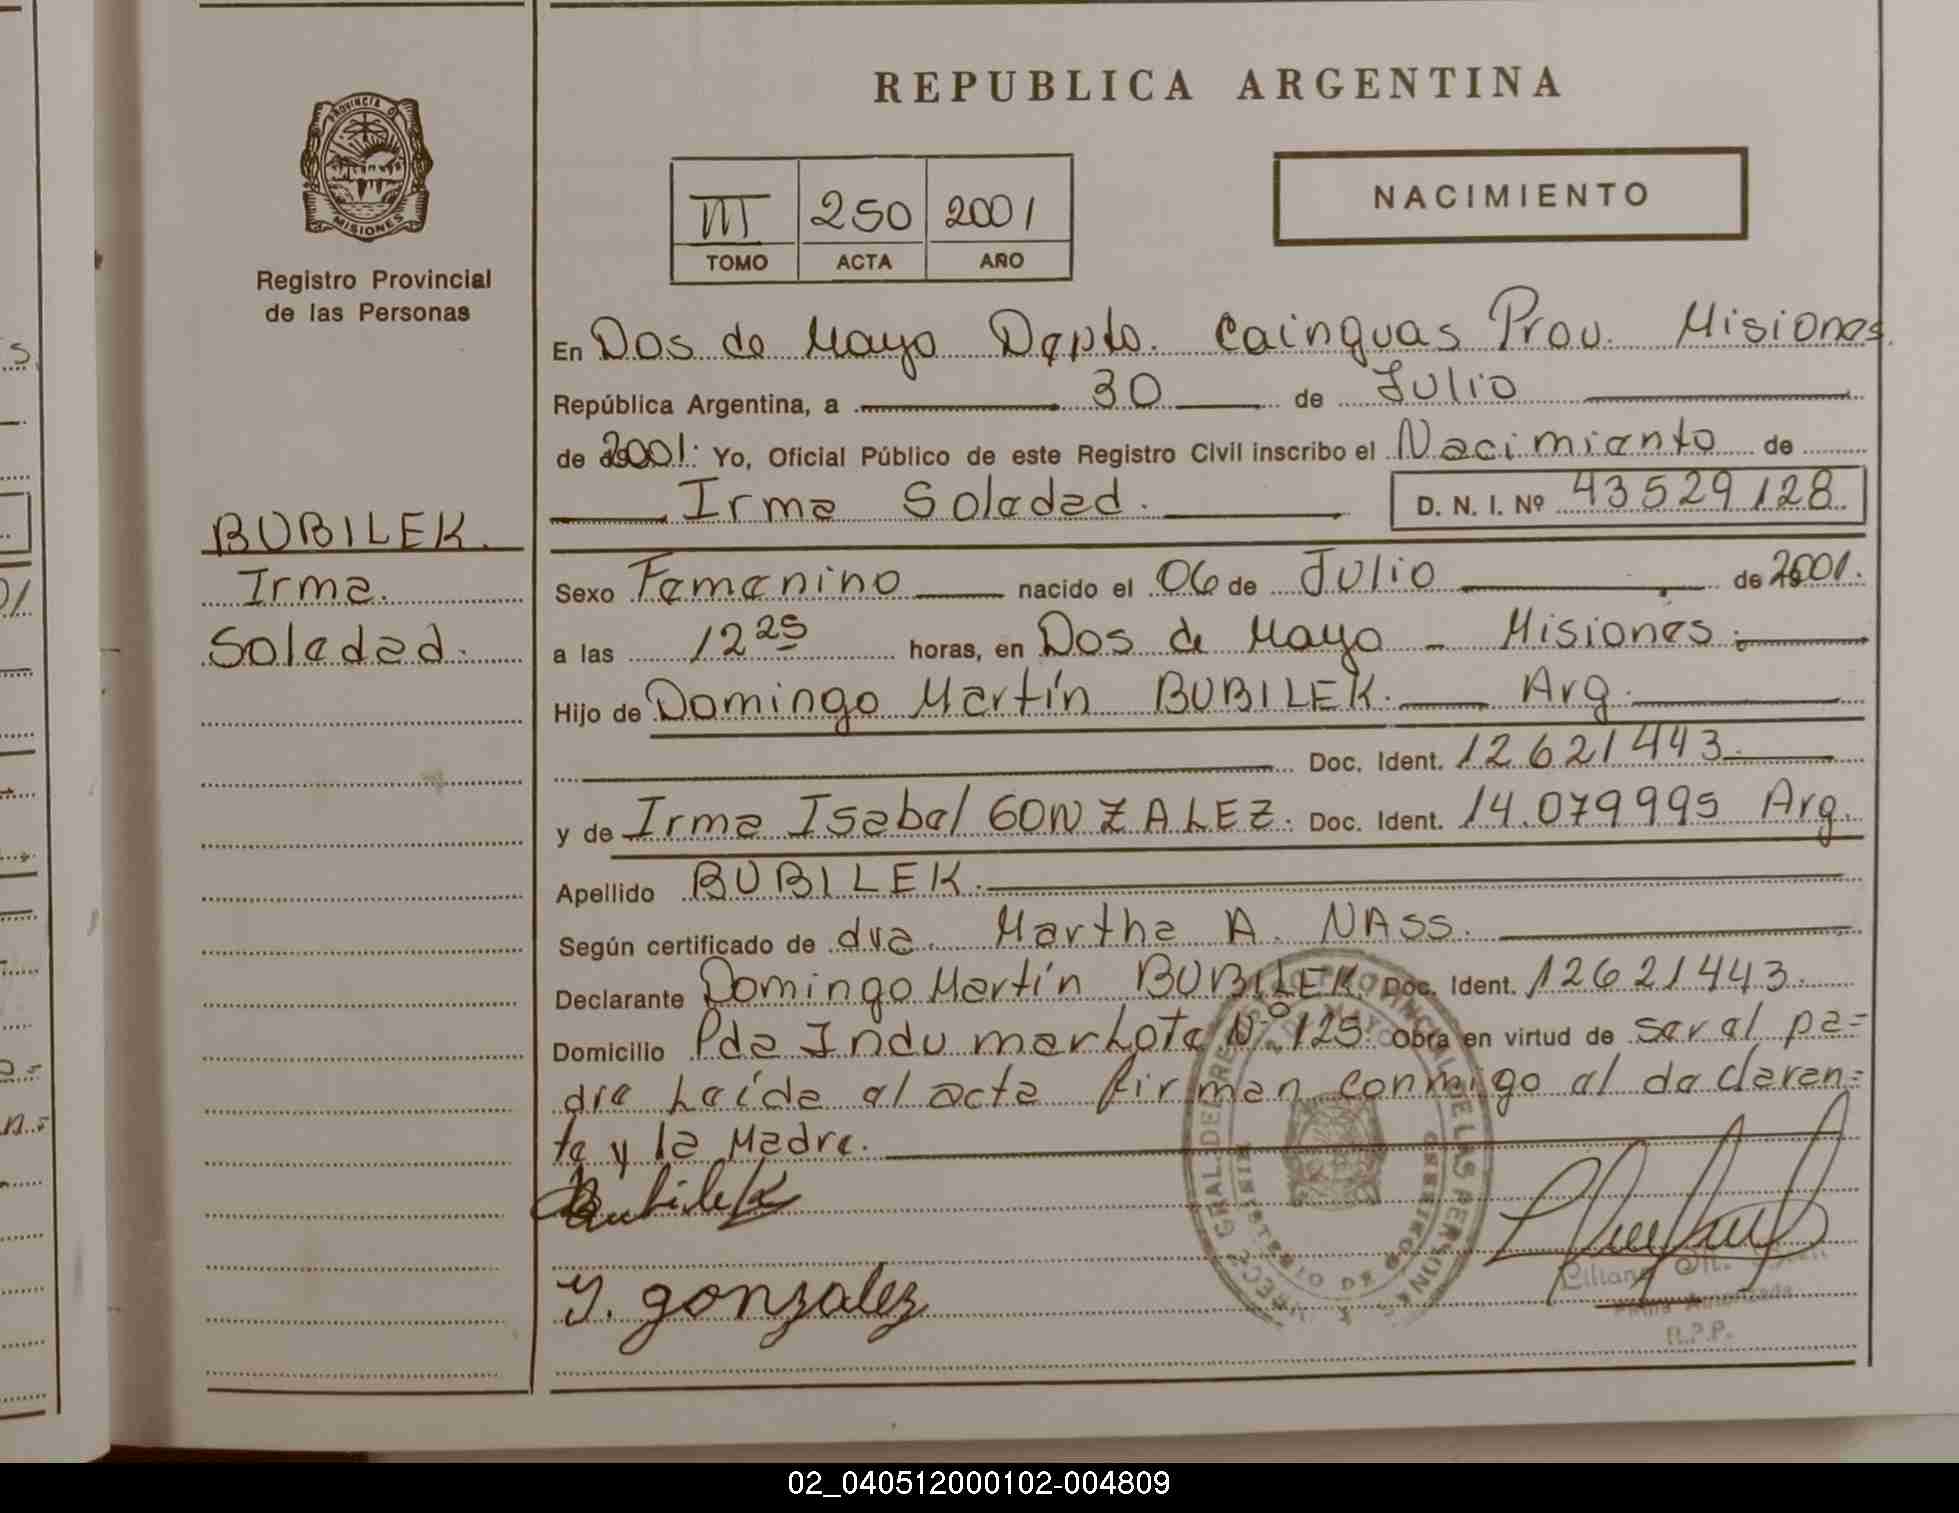 REPUBLICA ARGENTINA
PROVINCIA D
MISIONES
Registro Provincial
de las Personas
III 250 2001
TOMO ACTA AÑO
NACIMIENTO
En Dos de Mayo Depto. Cainguas Prov. Misiones
República Argentina, a 30 de Julio
de 2001. Yo, Oficial Público de este Registro Civil inscribo el Nacimiento de
Irma Soledad. D. N. I. Nº 43529128
BUBILEK.
Irma.
Soledad.
Sexo Femenino nacido el 06 de Julio de 2001.
a las 12 25 horas, en Dos de Mayo - Misiones.
Hijo de Domingo Martín BUBILEK. Arg.
Doc. Ident. 12621443.
y de Irma Isabel GONZALEZ. Doc. Ident. 14.079995 Arg.
Apellido BUBILEK.
Según certificado de dra. Martha A. NASS.
Declarante Domingo Martín BUBILEK. Doc. Ident. 12621443.
Domicilio Pda Indumar Lote Nº 125. Obra en virtud de ser el pa=
dre Leída el acta firman conmigo el declaran=
te y la Madre.
Bubilek
Y. gonzalez
Liliana
Firma Autorizada
R.P.P.
02_040512000102-004809